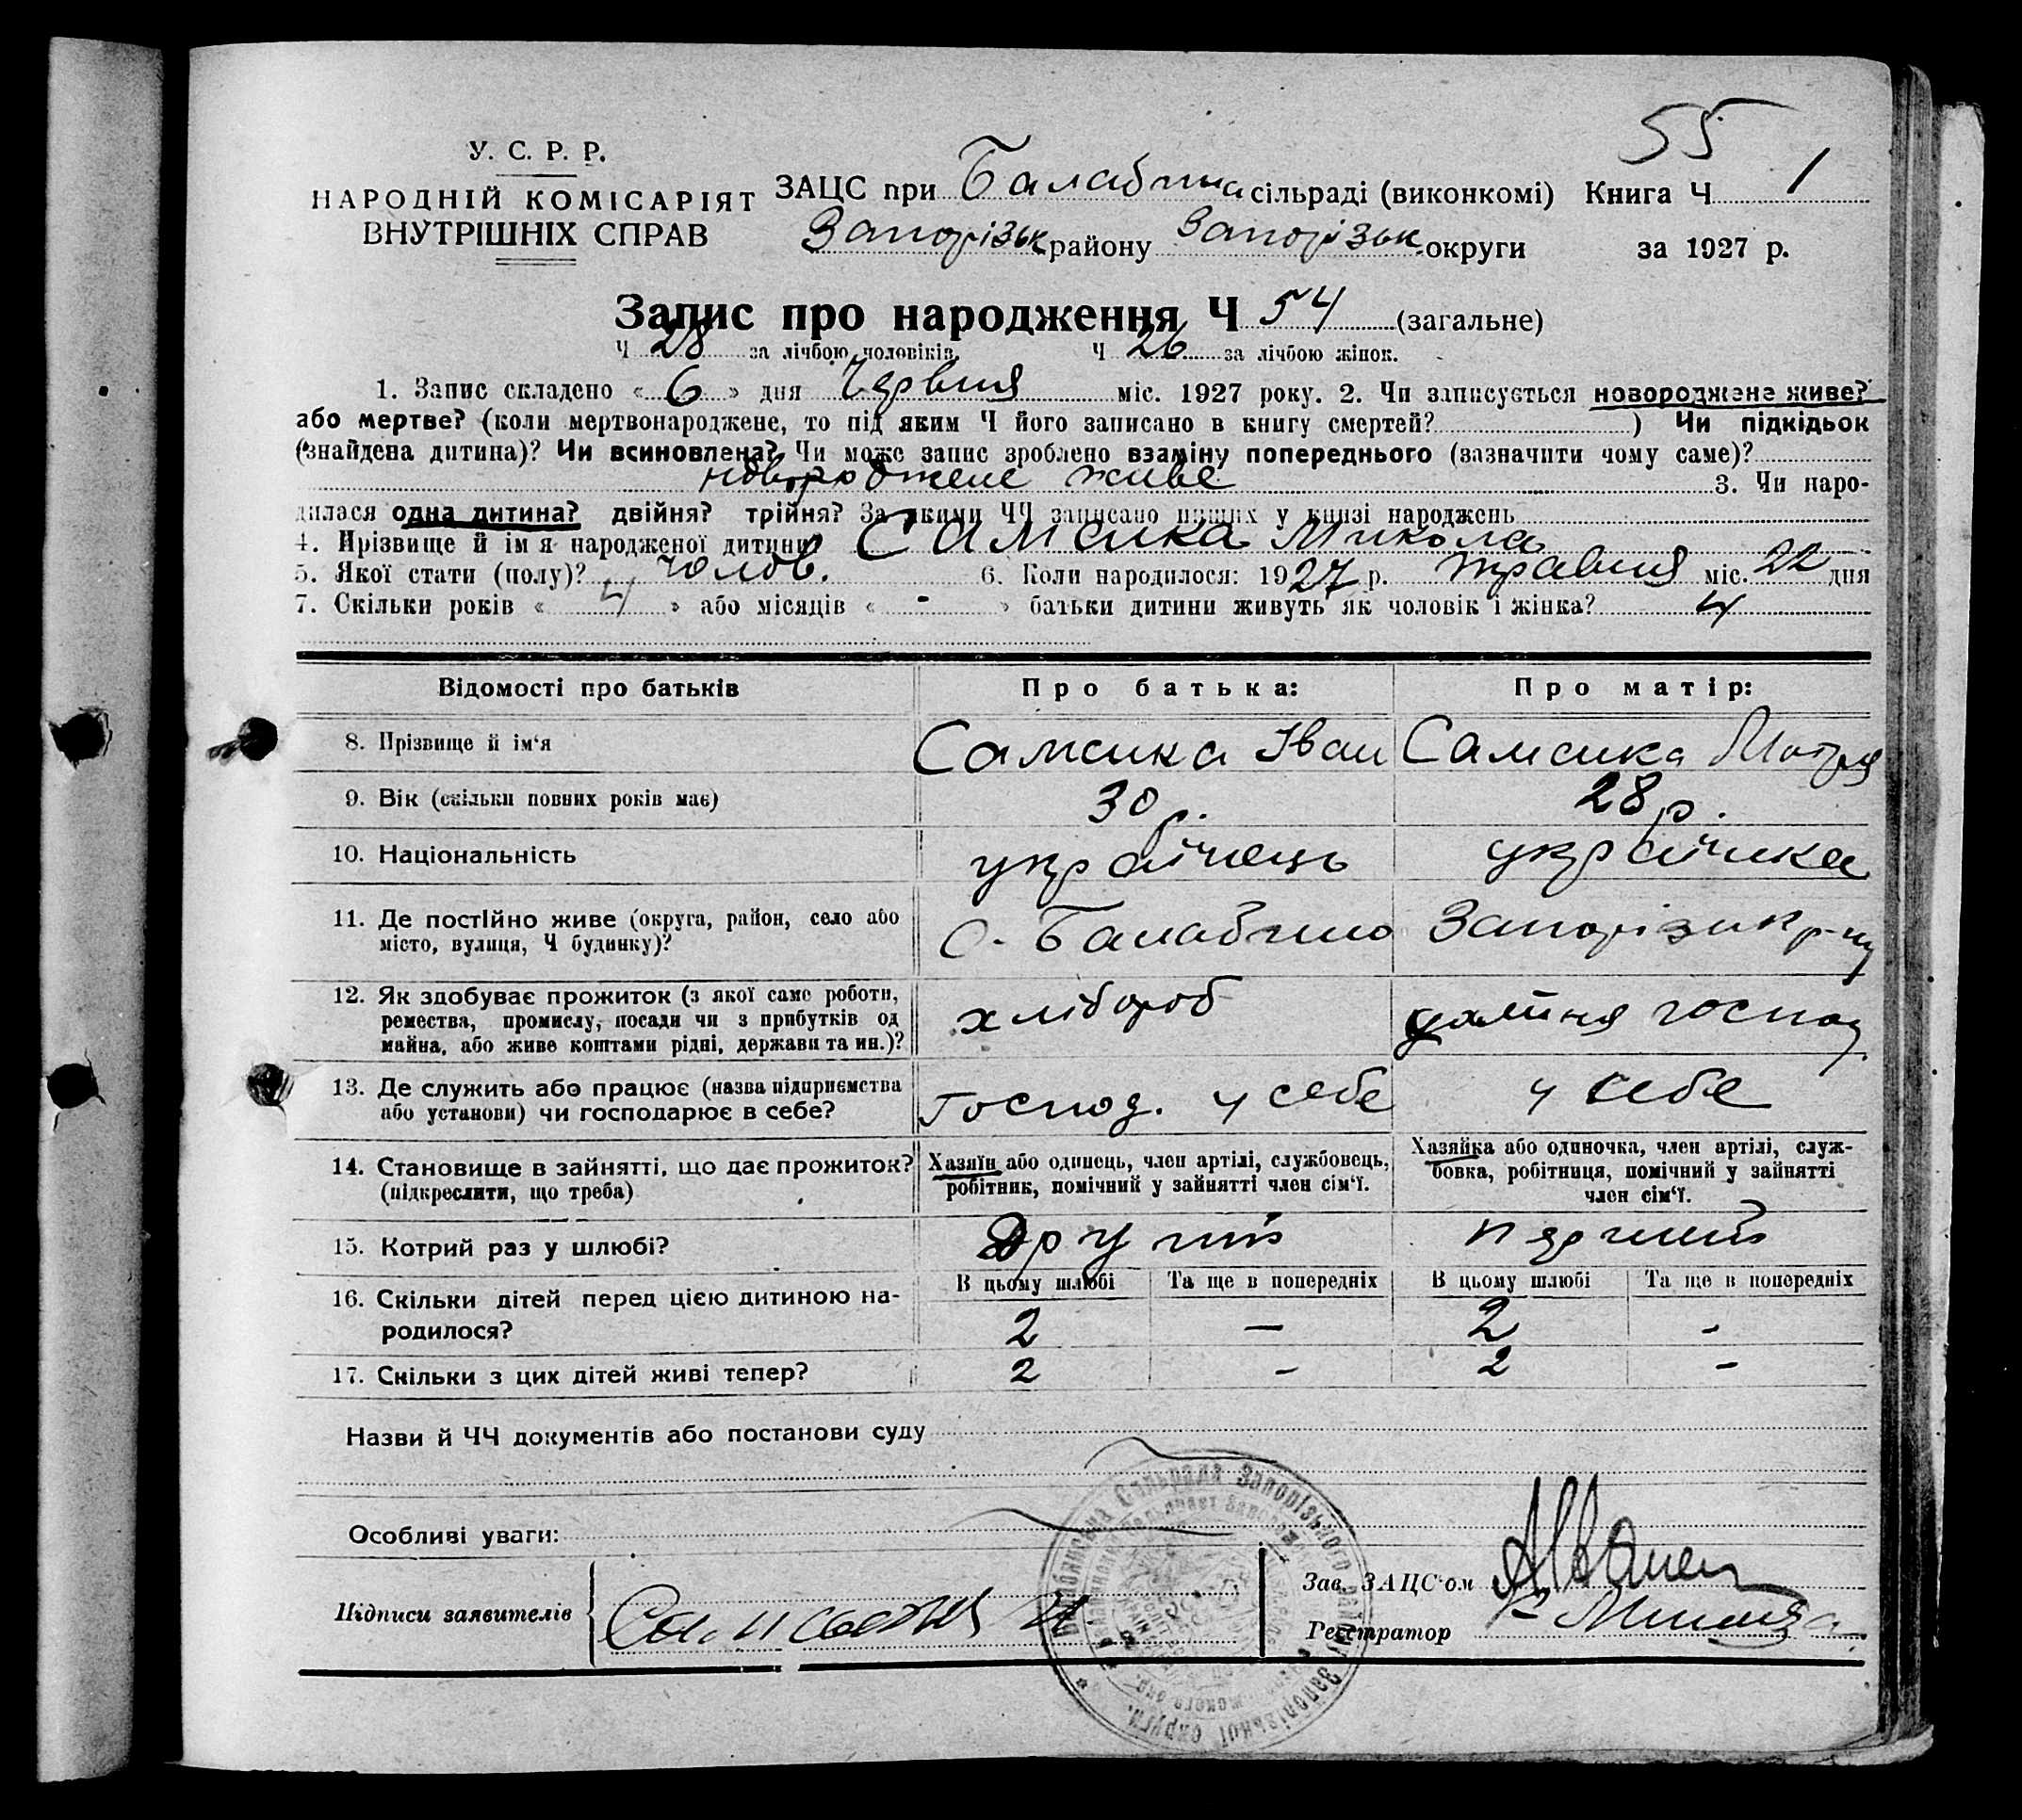 55
У. С. Р. Р.
НАРОДНІЙ КОМІСАРІЯТ
ВНУТРІШНІХ СПРАВ
ЗАЦС при Балабина сільраді (виконкомі) Книга Ч 1
Запорізьк району Запорізьк округи за 1927 р.
Запис про народження Ч 54 (загальне)
Ч 28 за лічбою чоловіків. Ч 26 за лічбою жінок.
1. Запис складено « 6 » дня Червня міс. 1927 року. 2. Чи записується новороджене живе?
або мертве? (коли мертвонароджене, то під яким Ч його записано в книгу смертей? ) Чи підкідьок
(знайдена дитина)? Чи всиновлена? Чи може запис зроблено взаміну попереднього (зазначити чому саме)?
новороджене живе 3. Чи наро-
дилася одна дитина? двійня? трійня? За якими ЧЧ записано инших у книзі народжень
4. Прізвище й ім'я народженої дитини Самсика Микола
5. Якої стати (полу)? Чолов. 6. Коли народилося: 1927 р. травня міс. 22 дня
7. Скільки років « 4 » або місяців « - » батьки дитини живуть як чоловік і жінка? 4
Відомості про батьків Про батька: Про матір:
8. Прізвище й ім'я Самсика Іван Самсика Мотря
9. Вік (скільки повних років має) 30 р. 28 р.
10. Національність українець українка
11. Де постійно живе (округа, район, село або
місто, вулиця, Ч будинку)? с. Балабино Запорізьк р-ну
12. Як здобуває прожиток (з якої саме роботи,
ремества, промислу, посади чи з прибутків од
майна, або живе коштами рідні, держави та ин.)? хлібороб домашня господ
13. Де служить або працює (назва підприємства
або установи) чи господарює в себе? Господ. у себе у себе
14. Становище в зайнятті, що дає прожиток?
(підкреслити, що треба)
Хазяїн або одинець, член артілі, службовець,
робітник, помічний у зайнятті член сім'ї.
Хазяйка або одиночка, член артілі, служ-
бовка, робітниця, помічний у зайнятті
член сім'ї.
15. Котрий раз у шлюбі? Другий перший
В цьому шлюбі Та ще в попередніх В цьому шлюбі Та ще в попередніх
16. Скільки дітей перед цією дитиною на-
родилося? 2 — 2 -
17. Скільки з цих дітей живі тепер? 2 - 2 -
Назви й ЧЧ документів або постанови суду
Особливі уваги:
Зав. ЗАЦС'ом
Підписи заявителів
Реєстратор
Сільрада Запорізького району Запорізької округи